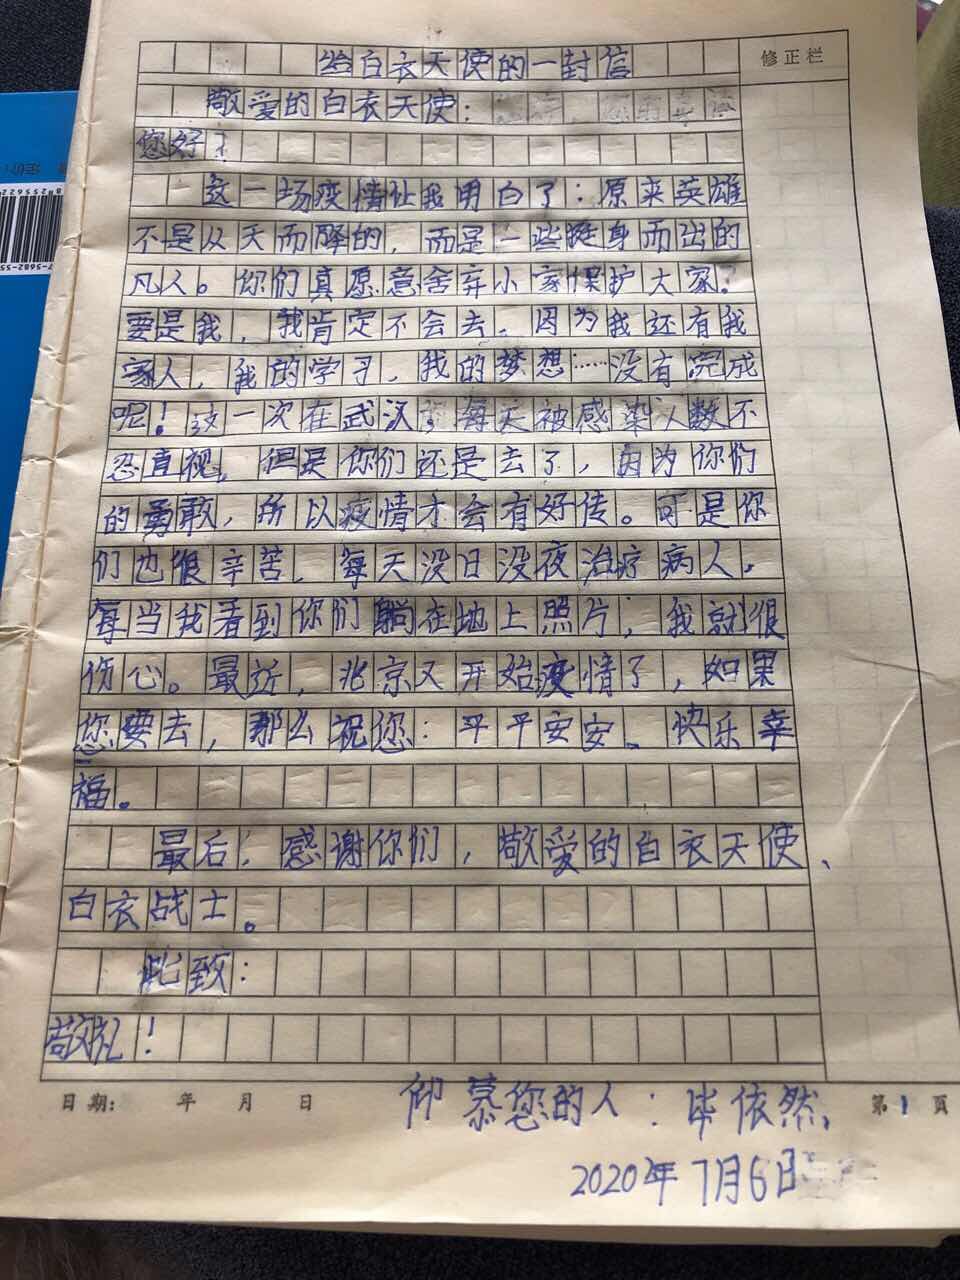 给白衣天使的一封信
修正栏
敬爱的白衣天使：
您好！
这一场疫情让我明白了：原来英雄
不是从天而降的，而是一些挺身而出的
凡人。你们真愿意舍弃小家保护大家？
要是我，我肯定不会去。因为我还有我
家人，我的学习，我的梦想……没有完成
呢！这一次在武汉，每天被感染人数不
忍直视，但是你们还是去了，因为你们
的勇敢，所以疫情才会有好传。可是你
们也很辛苦，每天没日没夜治疗病人。
每当我看到你们躺在地上照片，我就很
伤心。最近，北京又开始疫情了，如果
您要去，那么祝您：平平安安、快乐幸
福。
最后，感谢你们，敬爱的白衣天使、
白衣战士。
此致：
敬礼！
日期： 年 月 日
仰慕您的人：毕依然
第1页
2020年7月6日